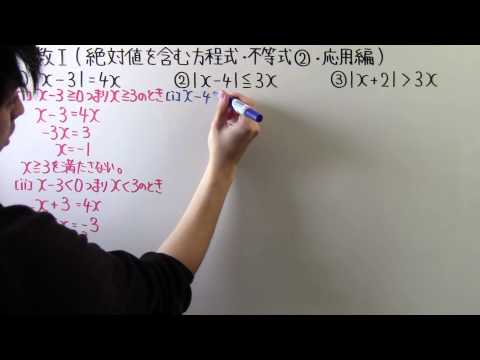 数Ⅰ(絶対値を含む方程式・不等式②・応用編)
x-3|=4x
②|x-4|≦3x
③|x+2|>3x
[i] x-3≧0つまりx≧3のとき
x-3=4x
-3x=3
x=-1
x≧3を満たさない。
[ii] x-3<0つまりx<3のとき
x+3=4x
x=-3
[i] x-4